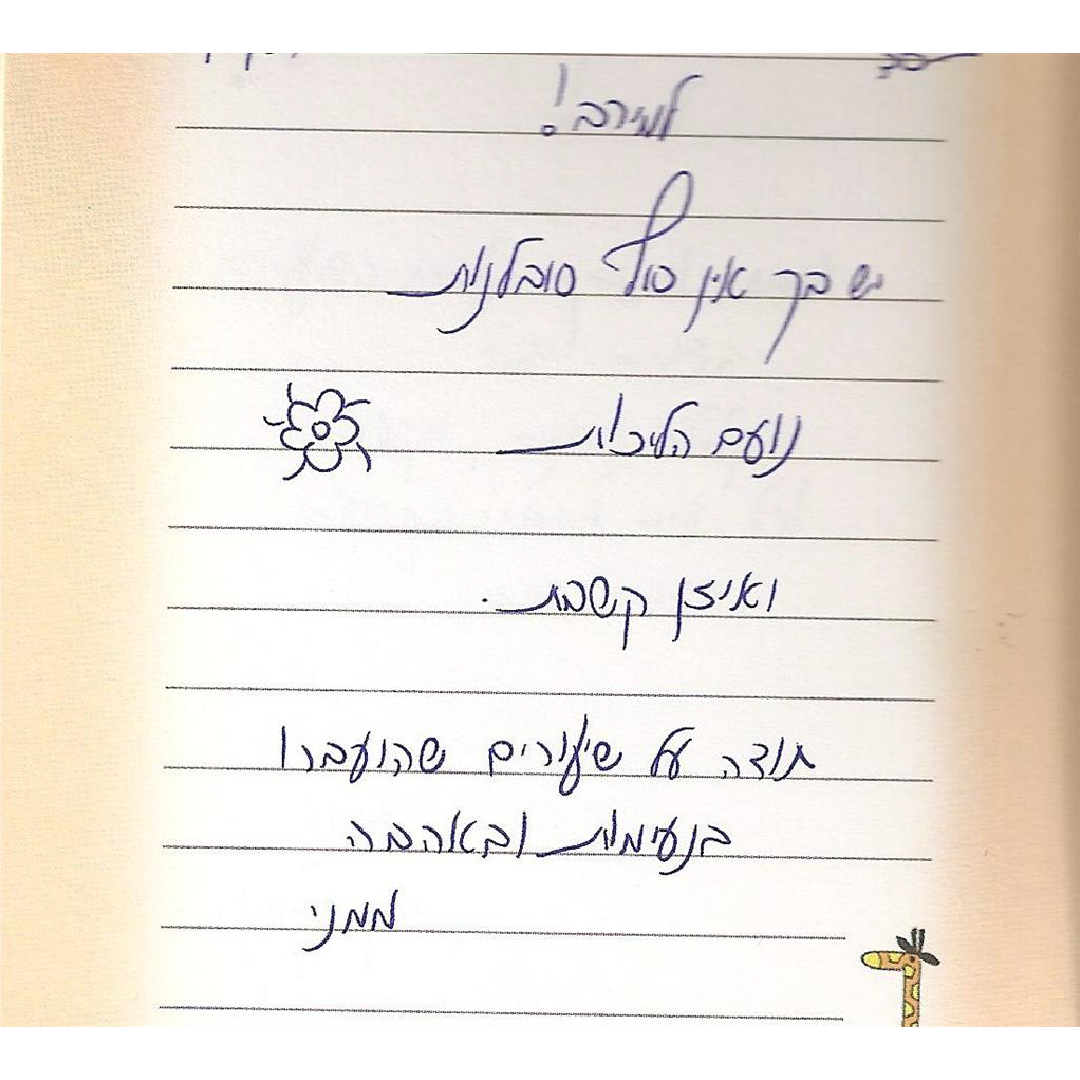 למירב!
יש בך אין סוף סובלנות
נועם הליכות
ואוזן קשבת.
תודה על שיעורים שהועברו
בנעימות ובאהבה
ממני